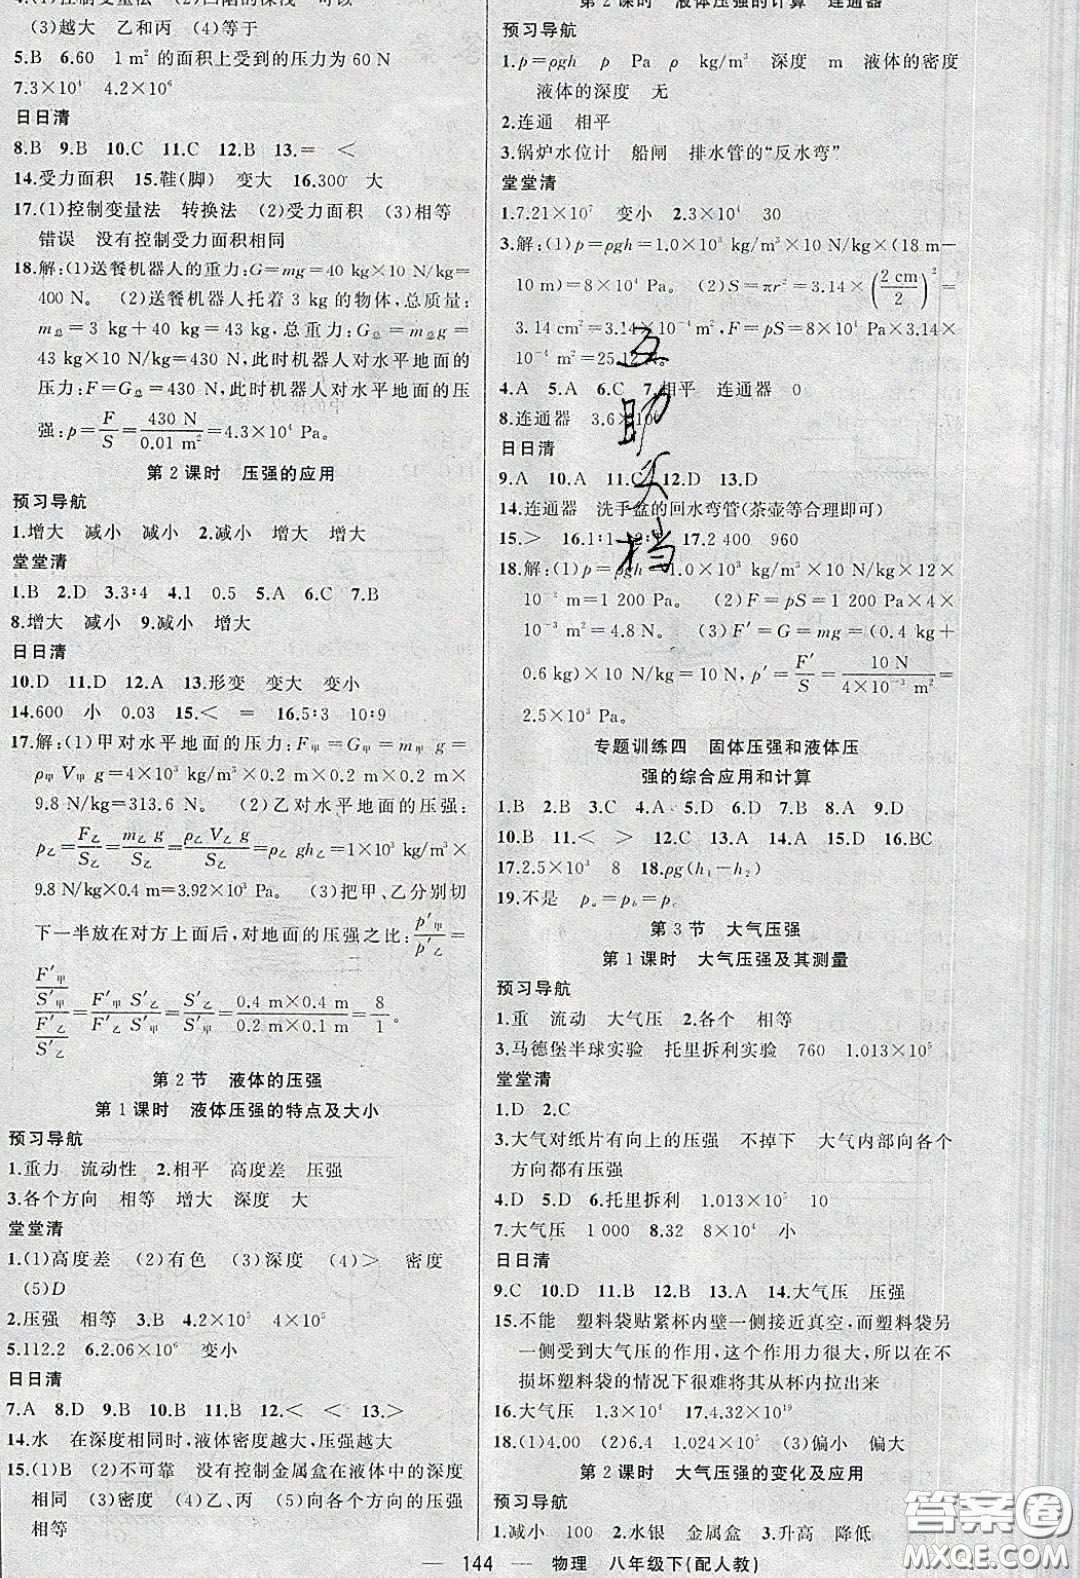 (3)越大 乙和丙 (4)等于
5.B 6.60 1 m²的面积上受到的压力为 60 N
7.3×10⁴ 4.2×10⁶
日日清
8.B 9.B 10.C 11.C 12.B 13.= <
14.受力面积 15.鞋(脚) 变大 16.300 大
17.(1)控制变量法 转换法 (2)受力面积 (3)相等
错误 没有控制受力面积相同
18.解:(1)送餐机器人的重力:G=mg=40 kg×10 N/kg=
400 N。 (2)送餐机器人托着 3 kg 的物体,总质量:
m总=3 kg+40 kg=43 kg,总重力:G总=m总g=
43 kg×10 N/kg=430 N,此时机器人对水平地面的
压力:F=G总=430 N,此时机器人对水平地面的压
强:p=F/S=430 N/0.01 m²=4.3×10⁴ Pa。
第 2 课时 压强的应用
预习导航
1.增大 减小 减小 2.减小 增大 增大
堂堂清
1.B 2.D 3.3∶4 4.1 0.5 5.A 6.C 7.B
8.增大 减小 9.减小 增大
日日清
10.D 11.D 12.A 13.形变 变大 变小
14.600 小 0.03 15.< = 16.5∶3 10∶9
17.解:(1)甲对水平地面的压力:F甲=G甲=m甲g=
ρ甲V甲g=4×10³ kg/m³×0.2 m×0.2 m×0.2 m×
9.8 N/kg=313.6 N。 (2)乙对水平地面的压强:
p乙=F乙/S乙=m乙g/S乙=ρ乙V乙g/S乙=ρ乙gh乙=1×10³ kg/m³×
9.8 N/kg×0.4 m=3.92×10³ Pa。 (3)把甲、乙分别切
下一半放在对方上面后,对地面的压强之比:p′甲/p′乙=
(F′甲/S′甲)/(F′乙/S′乙)=F′甲/F′乙×S′乙/S′甲=S′乙/S′甲=(0.4 m×0.4 m)/(0.2 m×0.1 m)=8/1。
第 2 节 液体的压强
第 1 课时 液体压强的特点及大小
预习导航
1.重力 流动性 2.相平 高度差 压强
3.各个方向 相等 增大 深度 大
堂堂清
1.(1)高度差 (2)有色 (3)深度 (4)> 密度
(5)D
2.压强 相等 3.D 4.2×10⁵ 1.2×10⁵
5.112.2 6.2.06×10⁶ 变小
日日清
7.A 8.D 9.B 10.B 11.B 12.< < 13.>
14.水 在深度相同时,液体密度越大,压强越大
15.(1)B (2)不可靠 没有控制金属盒在液体中的深度
相同 (3)密度 (4)乙、丙 (5)向各个方向的压强
相等
第 2 课时 液体压强的计算 连通器
预习导航
1.p=ρgh p Pa ρ kg/m³ 深度 m 液体的密度
液体的深度 无
2.连通 相平
3.锅炉水位计 船闸 排水管的“反水弯”
堂堂清
1.7.21×10⁷ 变小 2.3×10⁴ 30
3.解:(1)p=ρgh=1.0×10³ kg/m³×10 N/kg×(18 m−
10 m)=8×10⁴ Pa。 (2)S=πr²=3.14×(2 cm/2)²=
3.14 cm²=3.14×10⁻⁴ m²,F=pS=8×10⁴ Pa×3.14×
10⁻⁴ m²=25.12 N。
4.A 5.A 6.C 7.相平 连通器 0
8.连通器 3.6×10⁵
日日清
9.A 10.A 11.C 12.D 13.D
14.连通器 洗手盆的回水弯管(茶壶等合理即可)
15.> 17.2 400 960
18.解:(1)p=ρgh=1.0×10³ kg/m³×10 N/kg×12×
10⁻² m=1 200 Pa。 (2)F=pS=1 200 Pa×4×
10⁻³ m²=4.8 N。 (3)F′=G=mg=(0.4 kg+
0.6 kg)×10 N/kg=10 N,p′=F′/S=10 N/(4×10⁻³ m²)=
2.5×10³ Pa。
专题训练四 固体压强和液体压
强的综合应用和计算
1.B 2.B 3.C 4.A 5.D 6.D 7.B 8.A 9.D
10.B 11.< > 12.C 13.A 14.A 15.D 16.BC
17.2.5×10³ 8 18.ρg(h₁−h₂)
19.不是 pa=pb=pc
第 3 节 大气压强
第 1 课时 大气压强及其测量
预习导航
1.重 流动 大气压 2.各个 相等
3.马德堡半球实验 托里拆利实验 760 1.013×10⁵
堂堂清
1.D 2.C
3.大气对纸片有向上的压强 不掉下 大气内部向各个
方向都有压强
4.D 5.D 6.托里拆利 1.013×10⁵ 10
7.大气压 1 000 8.32 8×10⁴ 小
日日清
9.C 10.D 11.B 12.B 13.A 14.大气压 压强
15.不能 塑料袋贴紧杯内壁一侧接近真空,而塑料袋另
一侧受到大气压的作用,这个作用力很大,所以在不
损坏塑料袋的情况下很难将其从杯内拉出来
16.大气压 1.3×10⁴ 17.4.32×10¹⁹
18.(1)4.00 (2)6.4 1.024×10⁵ (3)偏小 偏大
第 2 课时 大气压强的变化及应用
预习导航
1.减小 100 2.水银 金属盒 3.升高 降低
— 144 — 物理 八年级下(配人教)
互助文档
答案圈
MXQE.COM